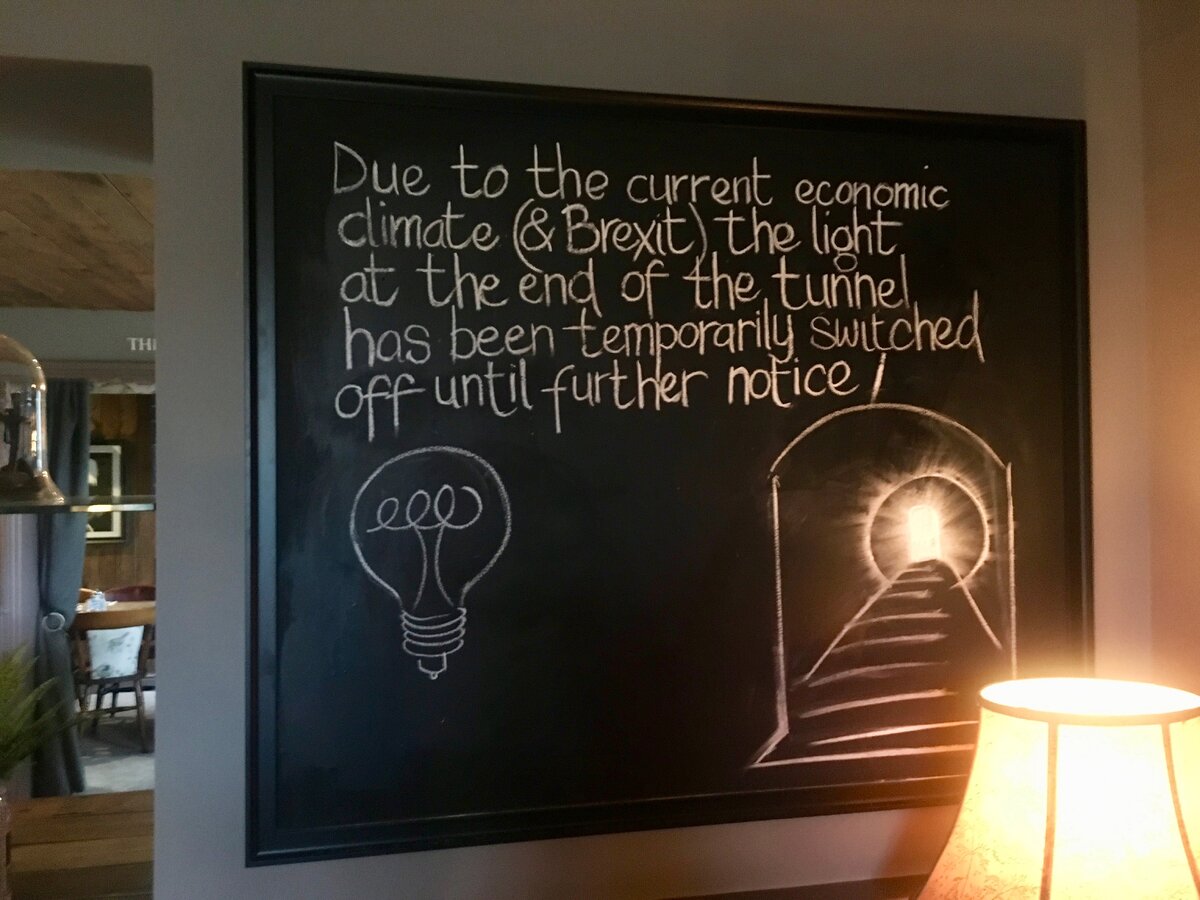 Due to the current economic
climate (& Brexit) the light
at the end of the tunnel
has been temporarily switched
off until further notice!